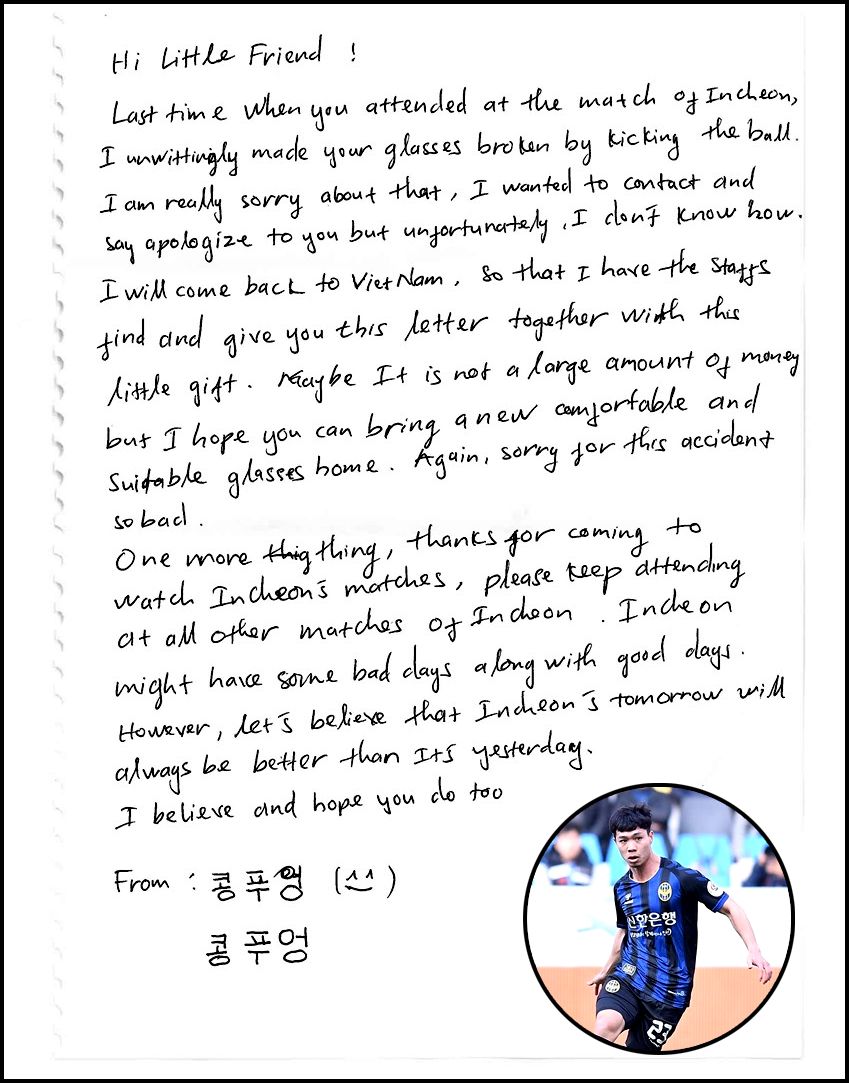 Hi Little Friend !
Last time when you attended at the match of Incheon,
I unwittingly made your glasses broken by kicking the ball.
I am really sorry about that, I wanted to contact and
say apologize to you but unfortunately, I don't know how.
I will come back to Viet Nam, so that I have the staffs
find and give you this letter together with this
little gift. Maybe It is not a large amount of money
but I hope you can bring a new comfortable and
suitable glasses home. Again, sorry for this accident
so bad.
One more thig thing, thanks for coming to
watch Incheon's matches, please keep attending
at all other matches of Incheon. Incheon
might have some bad days along with good days.
However, let's believe that Incheon's tomorrow will
always be better than It's yesterday.
I believe and hope you do too
From : 콩푸엉 (^^)
콩푸엉
신한은행
23